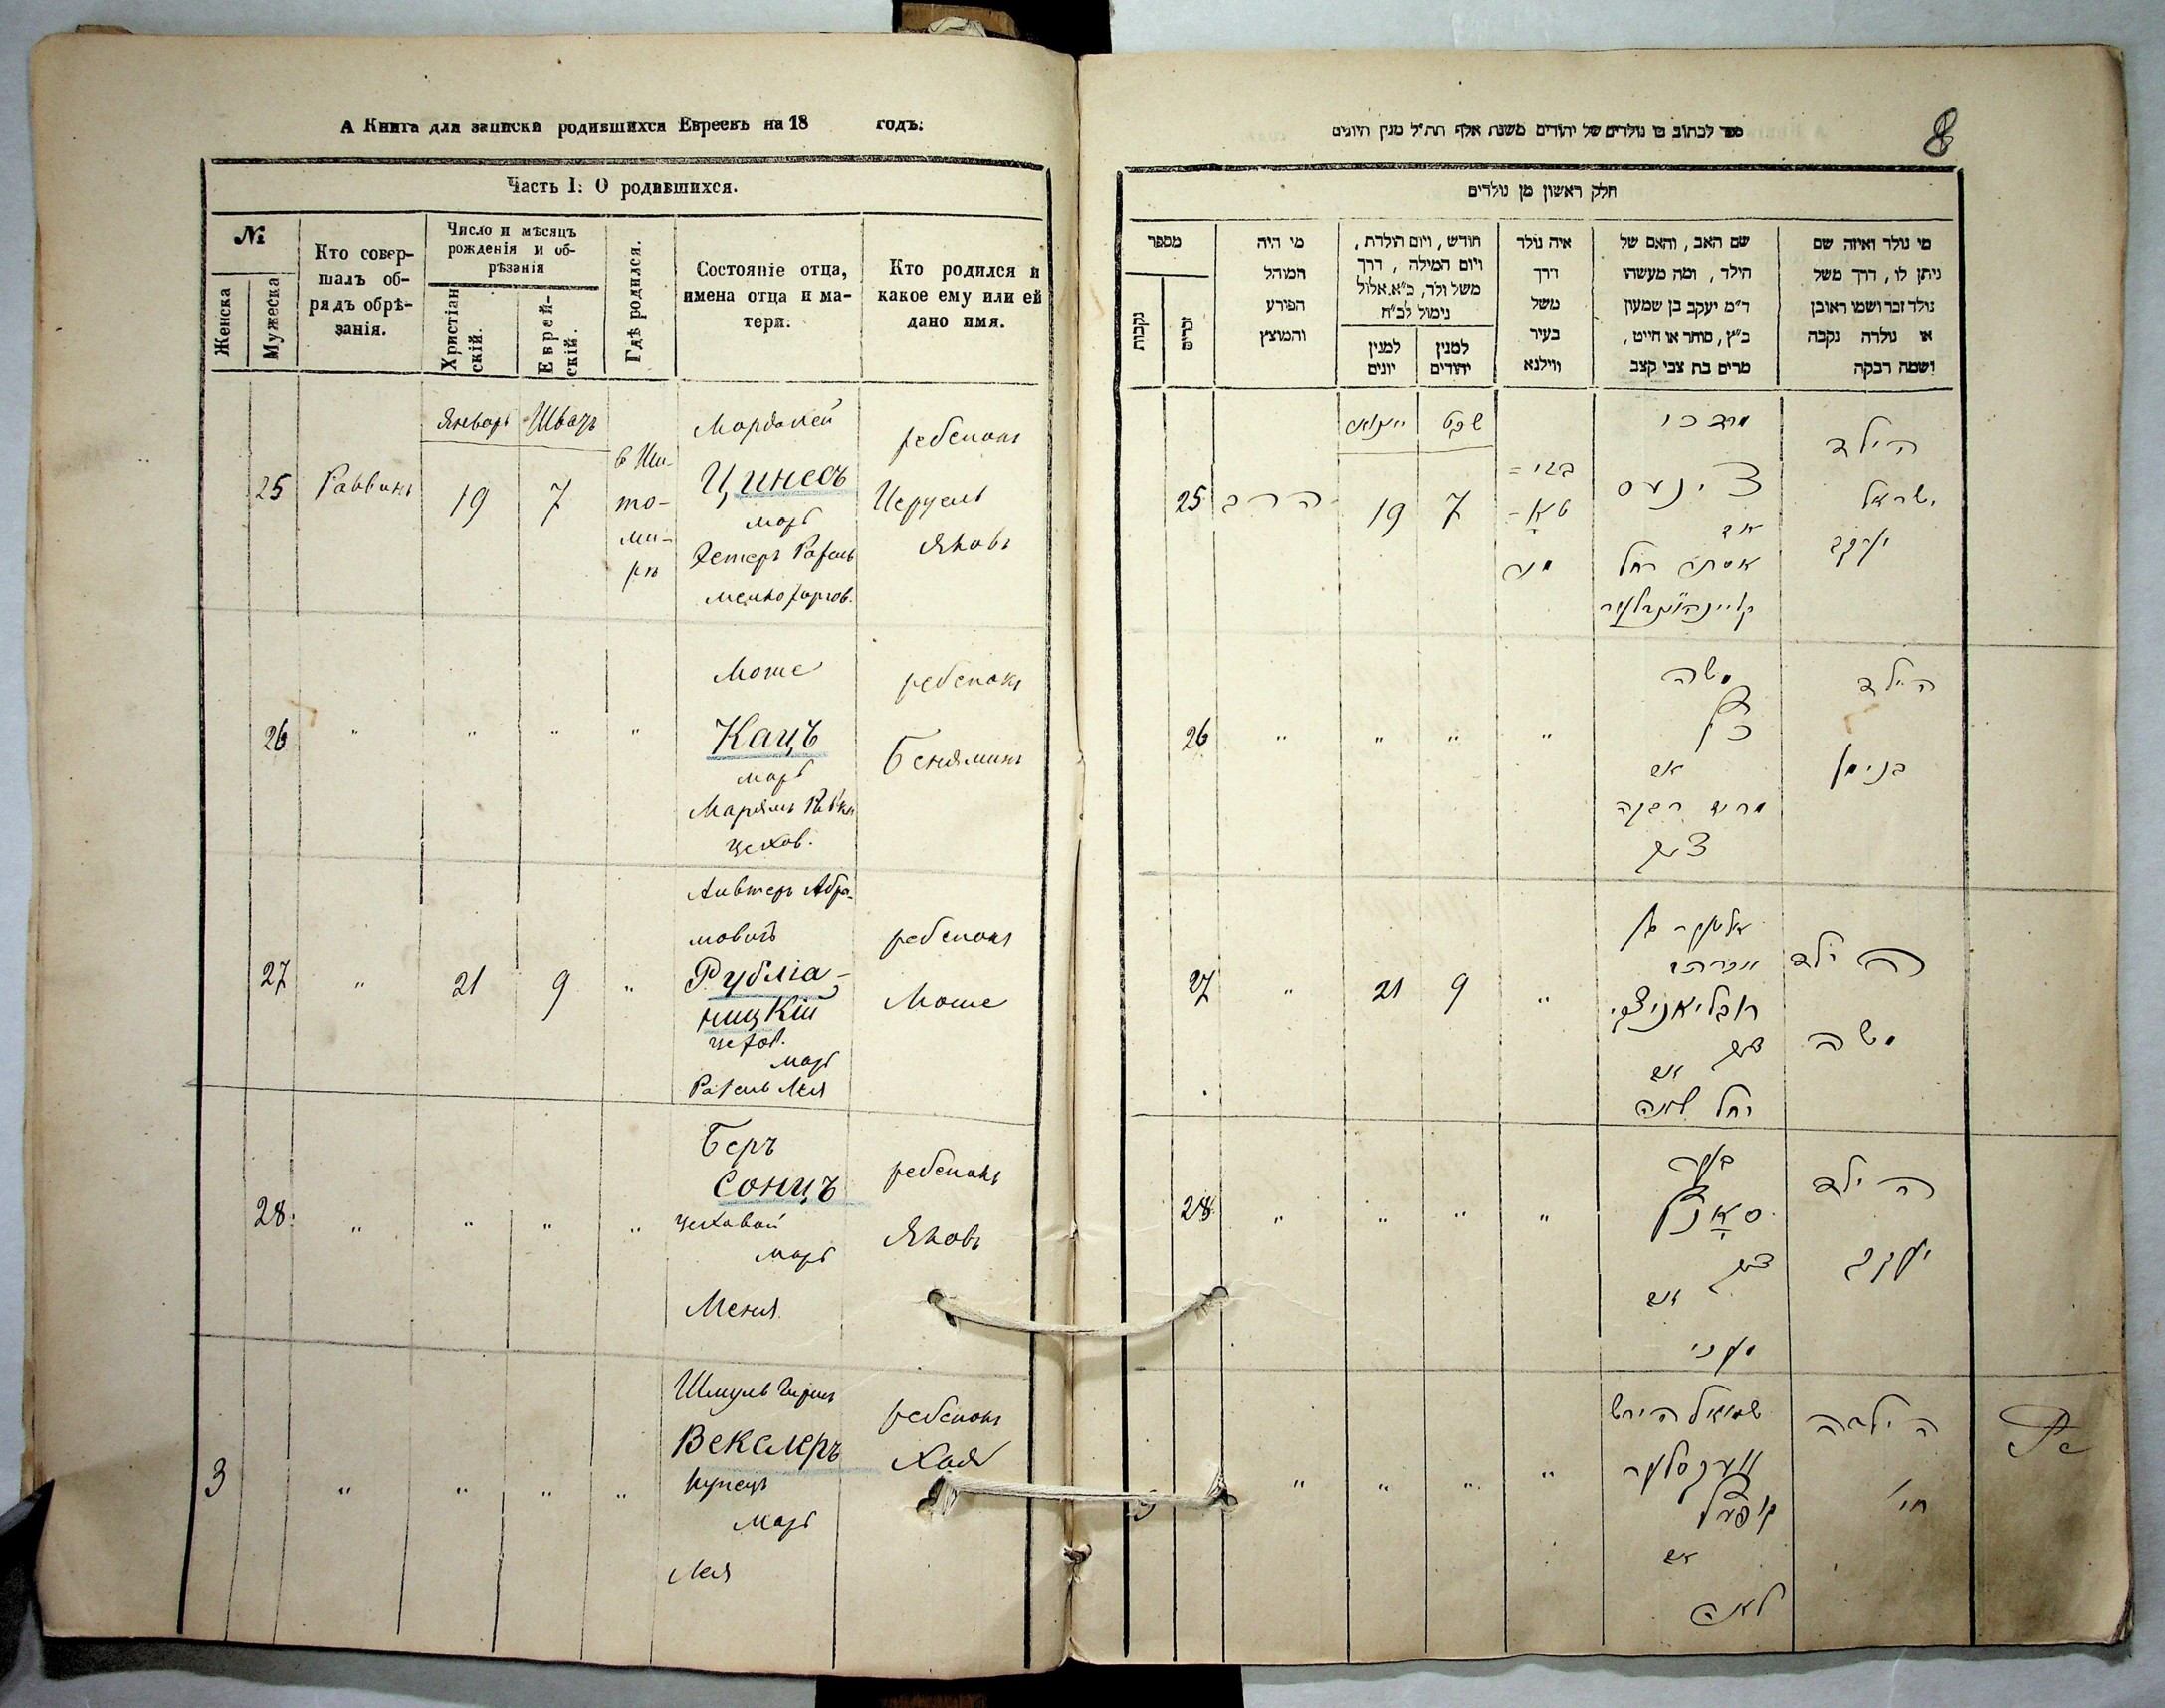 А Книга для записки родившихся Евреевъ на 18 годъ.
Часть I. О родившихся.
№
Женска
Мужеска
Кто совер-
шалъ об-
рядъ обрѣ-
занія.
Число и мѣсяцъ
рожденія и об-
рѣзанія
Христіан
скій.
Еврей-
скій.
Гдѣ родился.
Состояніе отца,
имена отца и ма-
тери.
Кто родился и
какое ему или ей
дано имя.
25
Раввинъ
Январь
19
Шватъ
7
в Жи-
то-
ми-
рѣ
Мордкей
Цинесъ
мать
Эстеръ Рахель
ребенокъ
Исруель
Яковъ
26
"
"
"
"
Моше
Кацъ
мать
Марьямъ Ривка
цехов.
ребенокъ
Бенямин
27
"
21
9
"
Альтеръ Абра-
мовичъ
Рублиа-
ницкій
цехов.
мать
Рахель Лея
ребенокъ
Моше
28
"
"
"
"
Беръ
Сонцъ
цеховой
мать
Меня
ребенокъ
Яковъ
3
"
"
"
"
Шмуль Гершъ
Векслеръ
купецъ
мать
Лея
ребенокъ
Хая
8
ספר לכתוב בו נולדים של יהודים משנת אלף תת״ל מנין היונים
חלק ראשון מן נולדים
מי נולד ואיזה שם
ניתן לו, דרך משל
נולד זכר ושמו ראובן
או נולדה נקבה
ושמה רבקה
שם האב, והאם של
הילד, ומה מעשהו
ד״מ יעקב בן שמעון
כ״ץ, סוחר או חייט,
מרים בת צבי קצב
איה נולד
דרך
משל
בעיר
ווילנא
חודש, ויום הולדת,
ויום המילה, דרך
משל ולד, כ״א אלול
נימול לכ״ח
למנין
יהודים
למנין
יונים
מי היה
המוהל
הפורע
והמוצץ
מספר
זכרים
נקבות
הילד
ישראל
יעקב
מרדכי
צינעס
אם
אסתר רחל
זשי=
טא=
מיר
שבט
7
יינואר
19
הרב
25
הילד
בנימין
משה
כץ
אם
מרים רבקה
צעך
"
"
"
"
26
הילד
משה
אלטער בן
אברהם
רובליאניצקי
צעך
אם
רחל לאה
"
9
21
"
27
הילד
יעקב
בער
סאנץ
צעך
אם
מעני
"
"
"
"
28
הילדה
חי׳
שמואל הירש
וועקסלער
קופעץ
אם
לאה
"
"
"
"
3